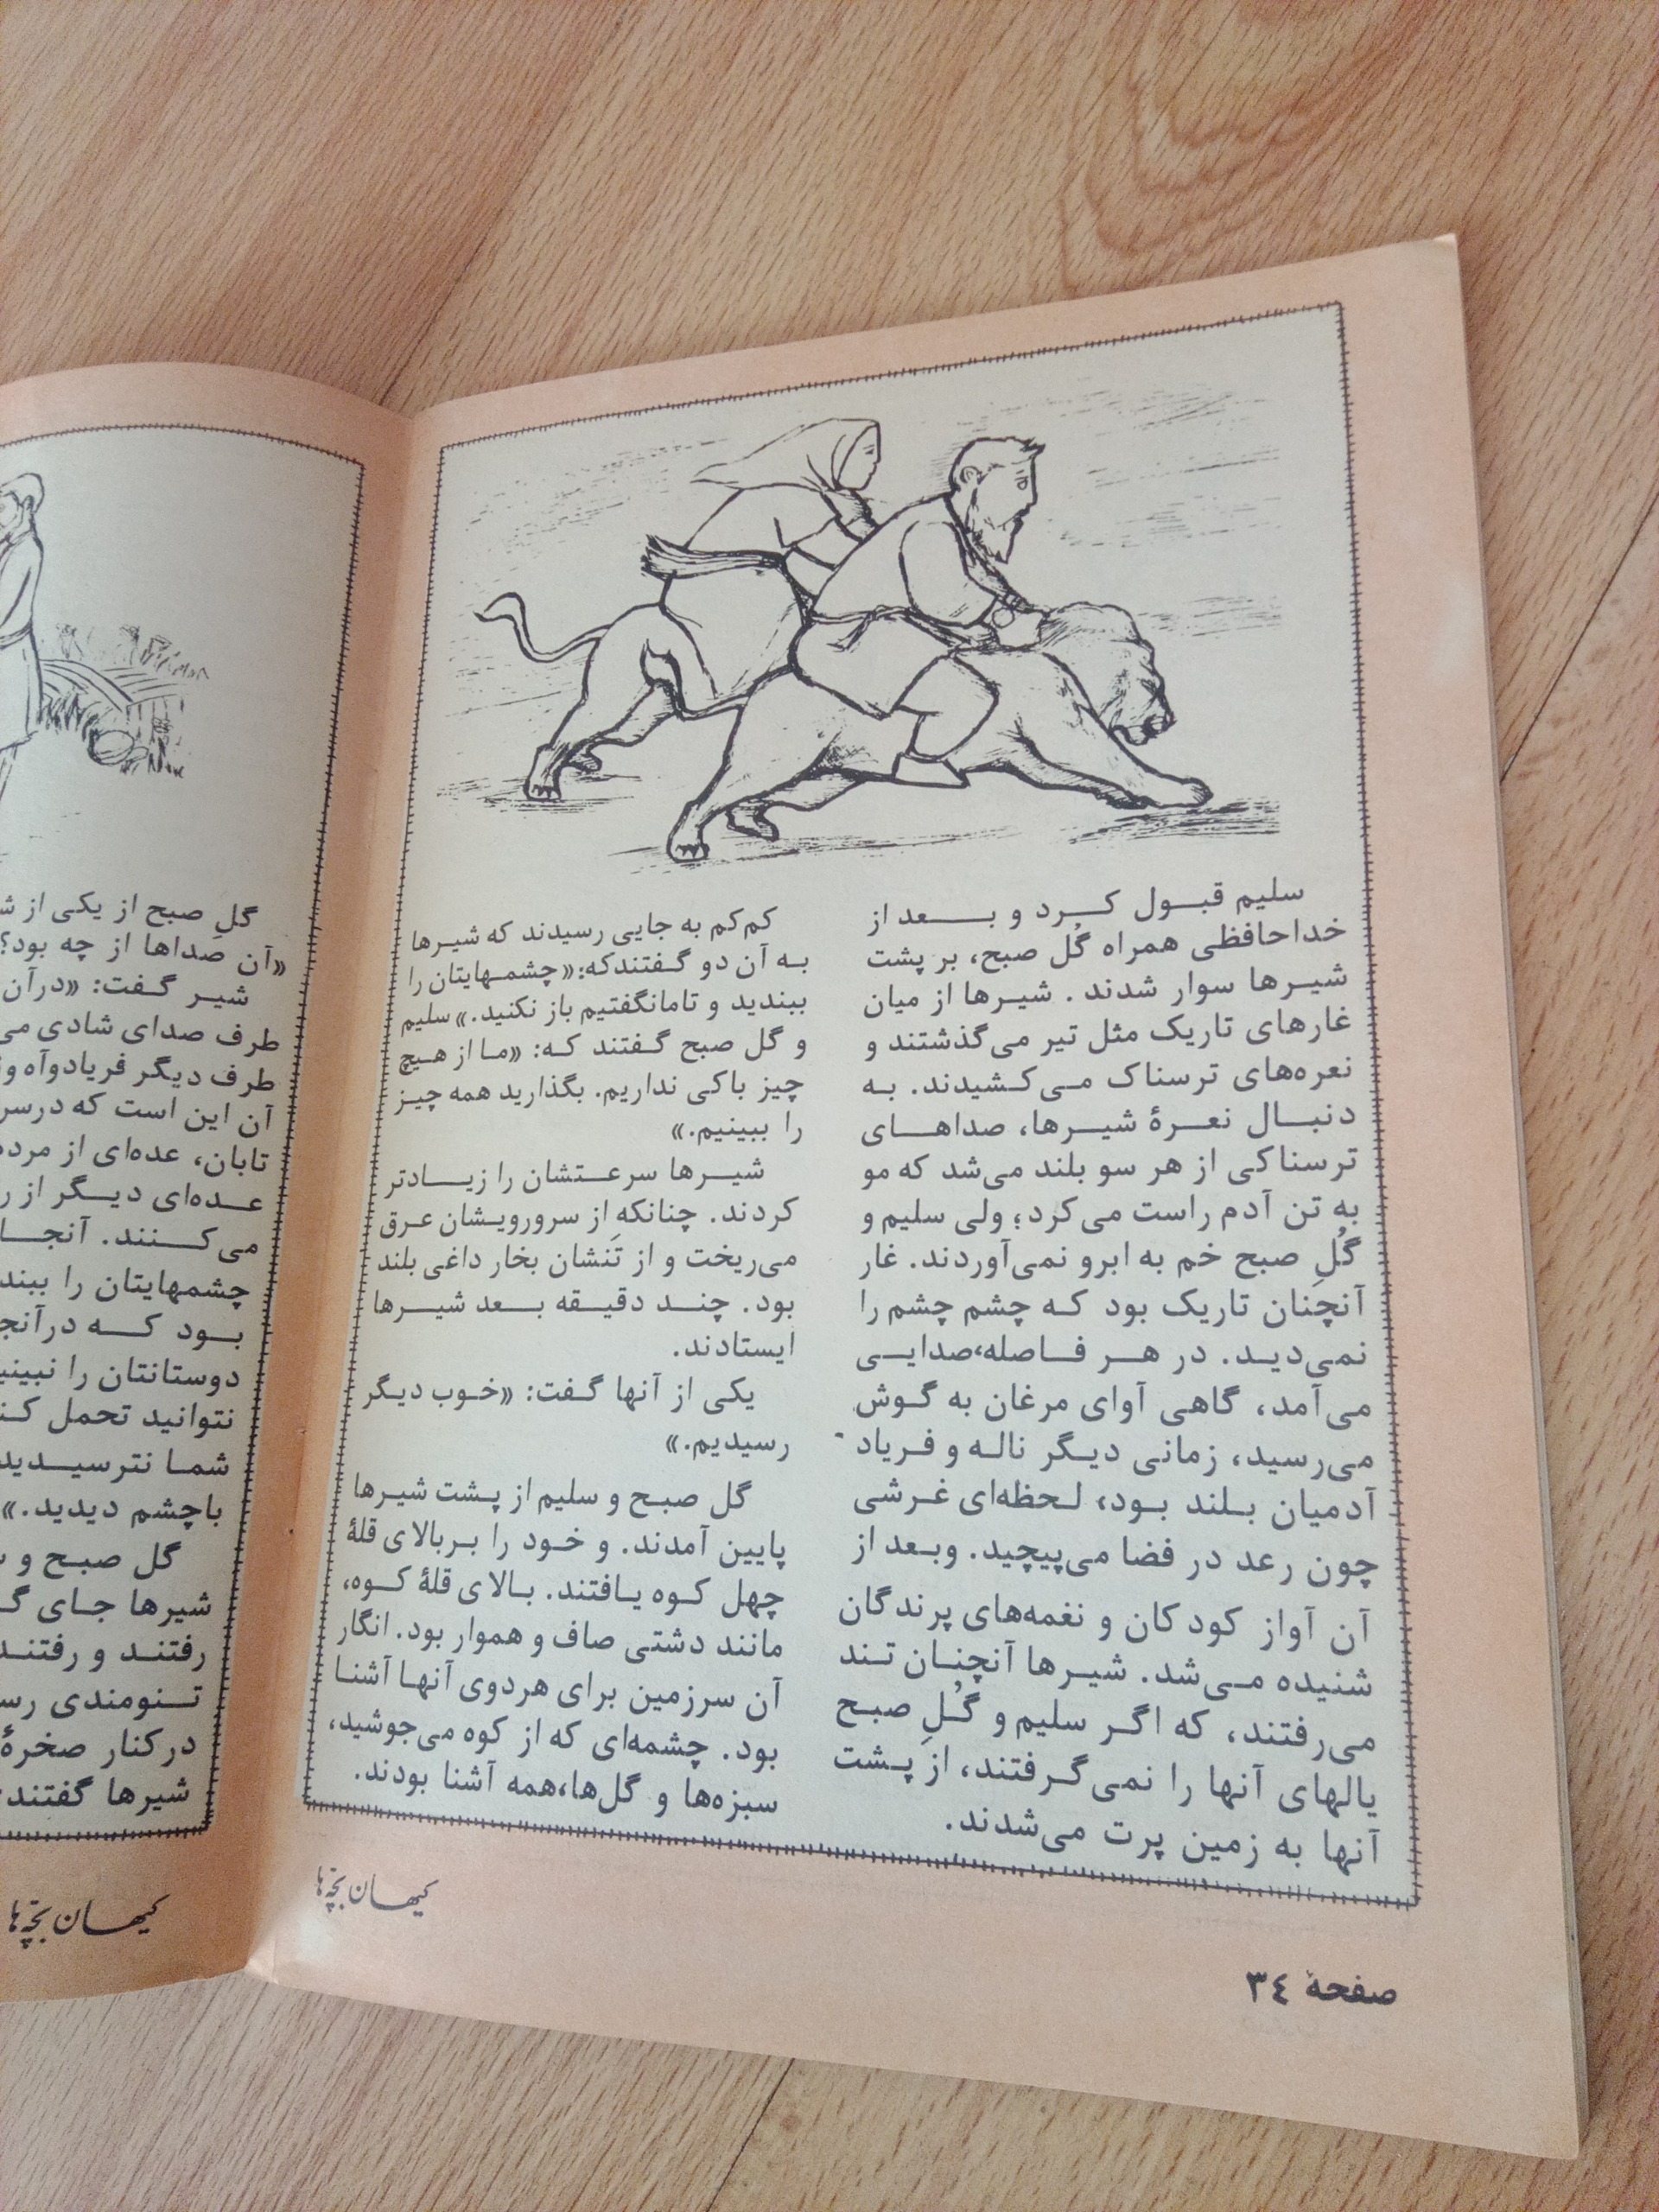 سلیم قبول کرد و بعد از
خداحافظی همراه گُل صبح، بر پشت
شیرها سوار شدند . شیرها از میان
غارهای تاریک مثل تیر می‌گذشتند و
نعره‌های ترسناک می‌کشیدند. به
دنبال نعرهٔ شیرها، صداهای
ترسناکی از هر سو بلند می‌شد که مو
به تن آدم راست می‌کرد؛ ولی سلیم و
گُلِ صبح خم به ابرو نمی‌آوردند. غار
آنچنان تاریک بود که چشم چشم را
نمی‌دید. در هر فاصله،صدایی
می‌آمد، گاهی آوای مرغان به گوش
می‌رسید، زمانی دیگر ناله و فریاد
آدمیان بلند بود، لحظه‌ای غرشی
چون رعد در فضا می‌پیچید. وبعد از
آن آواز کودکان و نغمه‌های پرندگان
شنیده می‌شد. شیرها آنچنان تند
می‌رفتند، که اگر سلیم و گُلِ صبح
یالهای آنها را نمی‌گرفتند، از پشت
آنها به زمین پرت می‌شدند.
کم‌کم به جایی رسیدند که شیرها
به آن دو گفتندکه:«چشمهایتان را
ببندید و تامانگفتیم باز نکنید.» سلیم
و گل صبح گفتند که: «ما از هیچ
چیز باکی نداریم. بگذارید همه چیز
را ببینیم.»
شیرها سرعتشان را زیادتر
کردند. چنانکه از سرورویشان عرق
می‌ریخت و از تَنشان بخار داغی بلند
بود. چند دقیقه بعد شیرها
ایستادند.
یکی از آنها گفت: «خوب دیگر
رسیدیم.»
گل صبح و سلیم از پشت شیرها
پایین آمدند. و خود را بربالای قلهٔ
چهل کوه یافتند. بالای قلهٔ کوه،
مانند دشتی صاف و هموار بود. انگار
آن سرزمین برای هردوی آنها آشنا
بود. چشمه‌ای که از کوه می‌جوشید،
سبزه‌ها و گل‌ها،همه آشنا بودند.
کیهان بچّه‌ها
صفحهٔ ۳٤
گلِ صبح از یکی از
«آن صداها از چه بود؟
شیر گفت: «درآن
طرف صدای شادی
طرف دیگر فریادوآه
آن این است که
تابان، عده‌ای از
عده‌ای دیگر از
می‌کنند.
چشمهایتان را
بود که
دوستانتان را
نتوانید تحمل
شما نترسیدید
باچشم دیدید.»
گل صبح و
شیرها جای
رفتند و رفتند
تنومندی
درکنار صخرهٔ
شیرها گفتند
کیهان بچّه‌ها